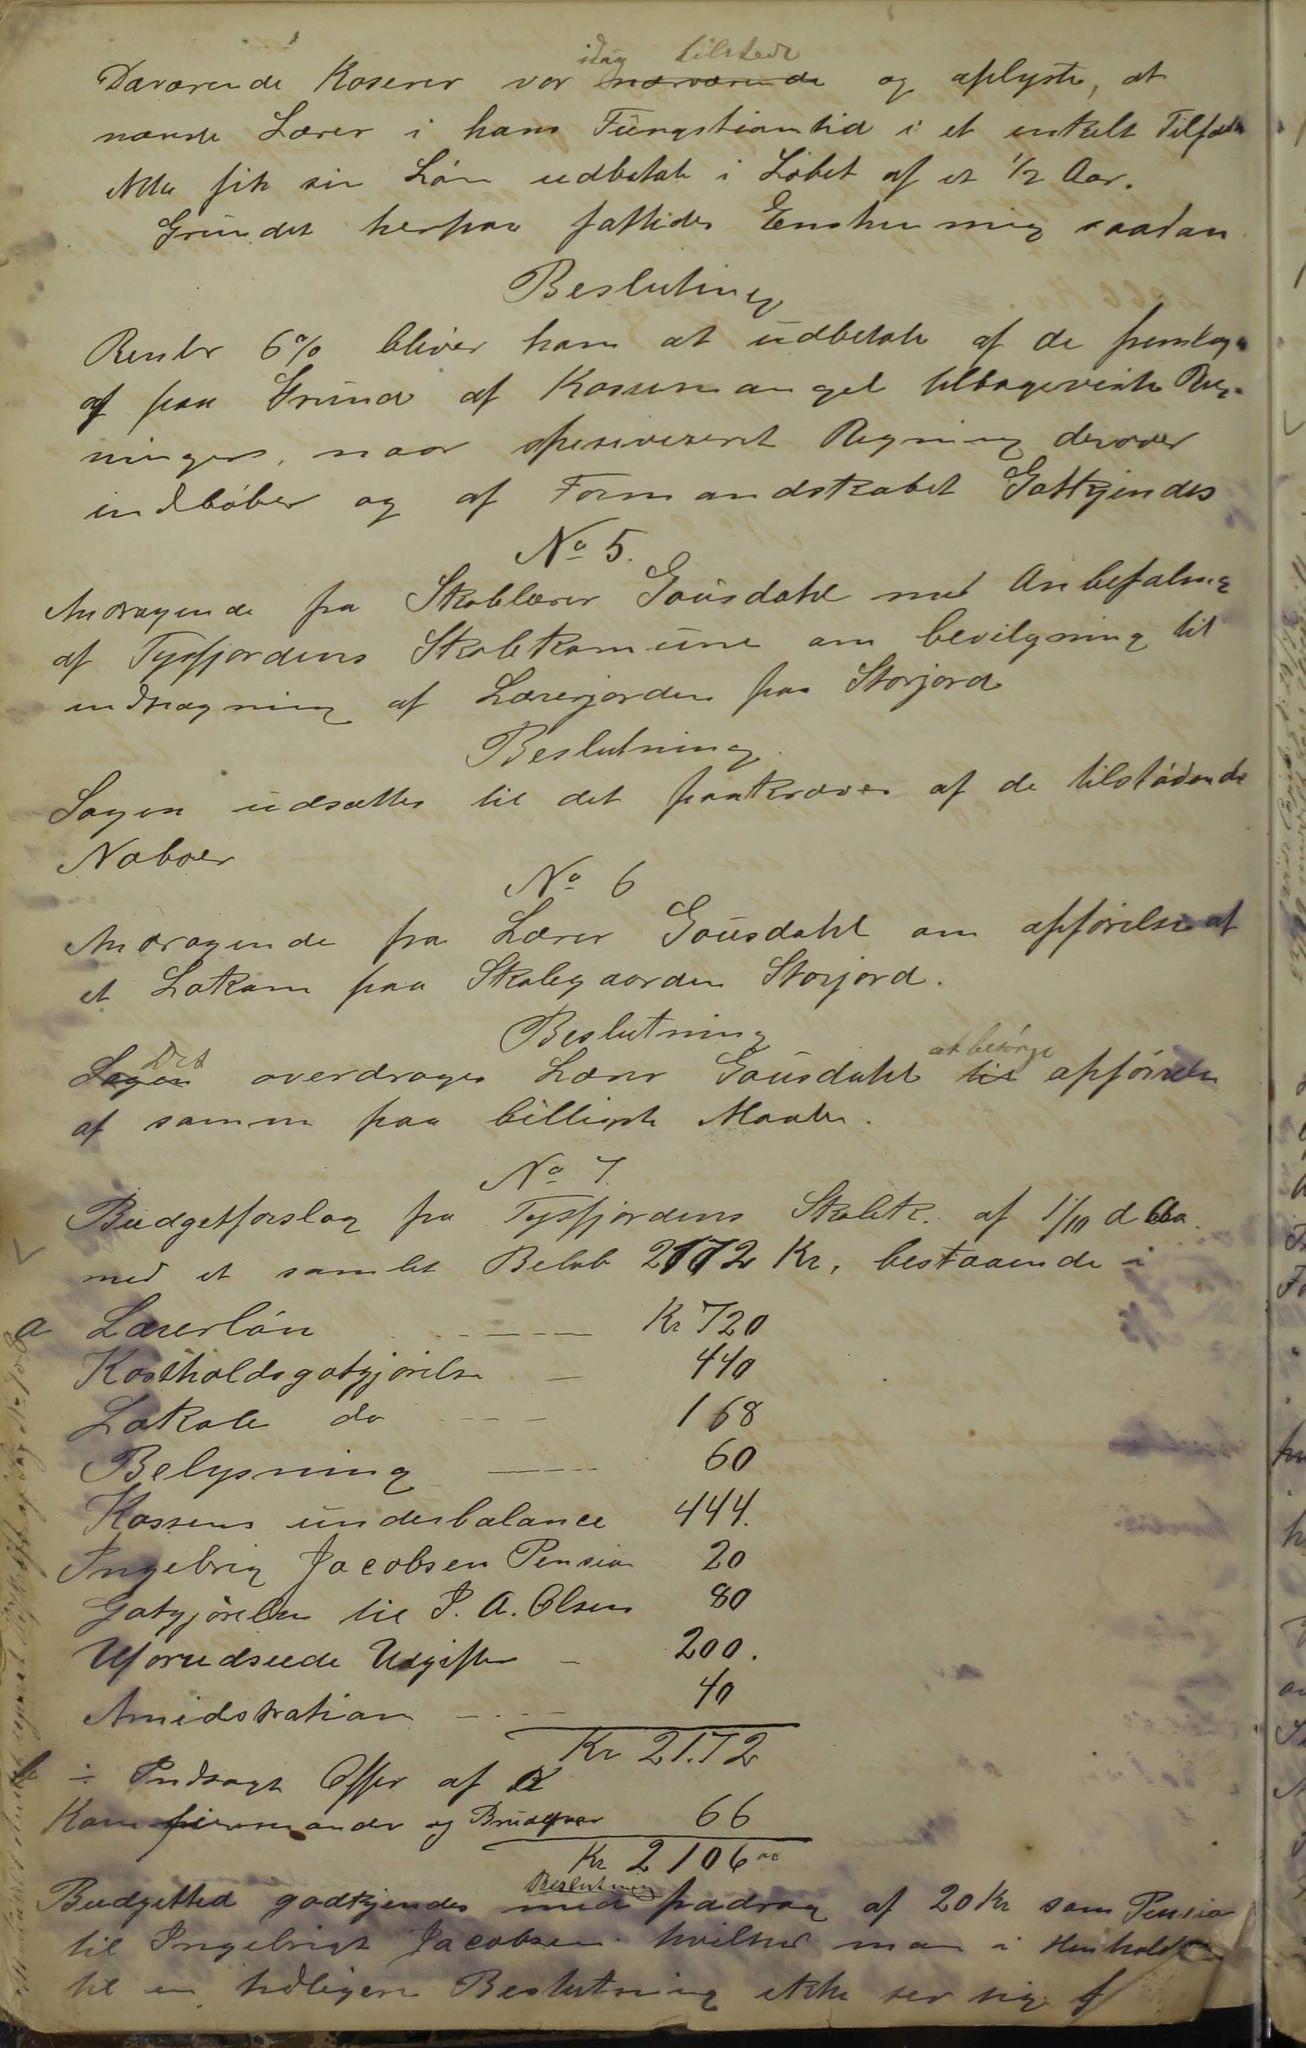 idag tilstede
Daværende Kaserer var nærværende og oplyste, at
nævnte Lærer i hans Fungstionstid i et enkelt Tilfælde
ikke fik sin Løn udbetalt i Løbet af et 1/2 Aar.
Grundet herpaa fattedes Enstemmig saadan
Beslutning
Renter 6% bliver ham at udbetale af de fremlag
af paa Grund af Kassemangel tilbageviste Reg-
ninger, naar spesiveseret Regning derover
indløber og af Formandskabet Gotkjendes
No 5.
Andragende fra Skolelærer Gousdahl med Anbefaling
af Tysfjordens Skolekomune om bevilgning til
indhægning af Lærerjorden paa Storjord
Beslutning
Sagen udsættes til det paakræves af de tilstødende
Naboer
No 6
Andragende fra Lærer Gousdahl om opførelse af
et Lokum paa Skolegaarden Storjord.
Beslutning
Det at besørge
Sagen overdrages Lærer Gousdahl til opførelse
af samme paa billigste Maade.
No 7.
Budgetforslag fra Tysfjordens Skolek. af 1/10 d Aa.
med et samlet Beløb 2172 Kr, bestaaende i
a Lærerløn Kr 720
Kostholdsgotgjørelse 440
Lokale do 168
Belysning 60
Kassens underbalance 444.
Ingebrig Jacobsen Pension 20
Gotgjørelse til P. A. Olsen 80
Uforudseede Udgifter 200.
Amidstration 40
Kr 2172
b ÷ Indsagt Offer af
Kom og Brudepar 66
Kr 2106 00
Beslutning
Budgetted godkjendes med fradrag af 20 Kr som Pension
til Ingebrigt Jacobsen hvilket man i Henhold
til en tidligere Beslutning ikke ser sig